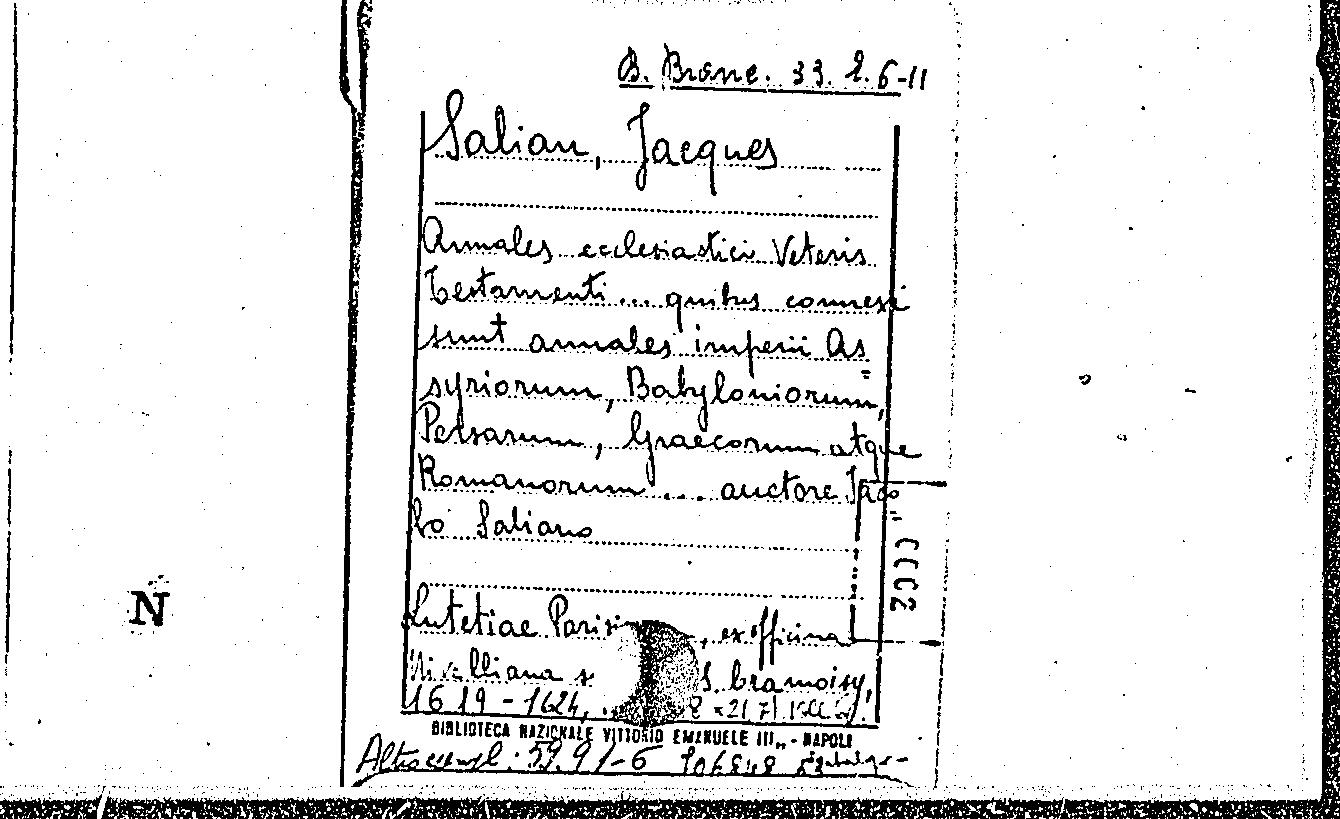 B. Branc. 33. L. 6-11
Salian, Jacques
Annales ecclesiastici Veteris
Testamenti ... quibus connexi
sunt annales imperii As
syriorum, Babyloniorum,
Persarum, Graecorum atque
Romanorum ... auctore Jaco
bo Saliano
CCC2
Lutetiae , ex officina
Nivelliana S. Cramoisy,
1619-1624,
BIBLIOTECA NAZIONALE VITTORIO EMANUELE III„ - NAPOLI
Altro esempl: 59. 9 1-6
N